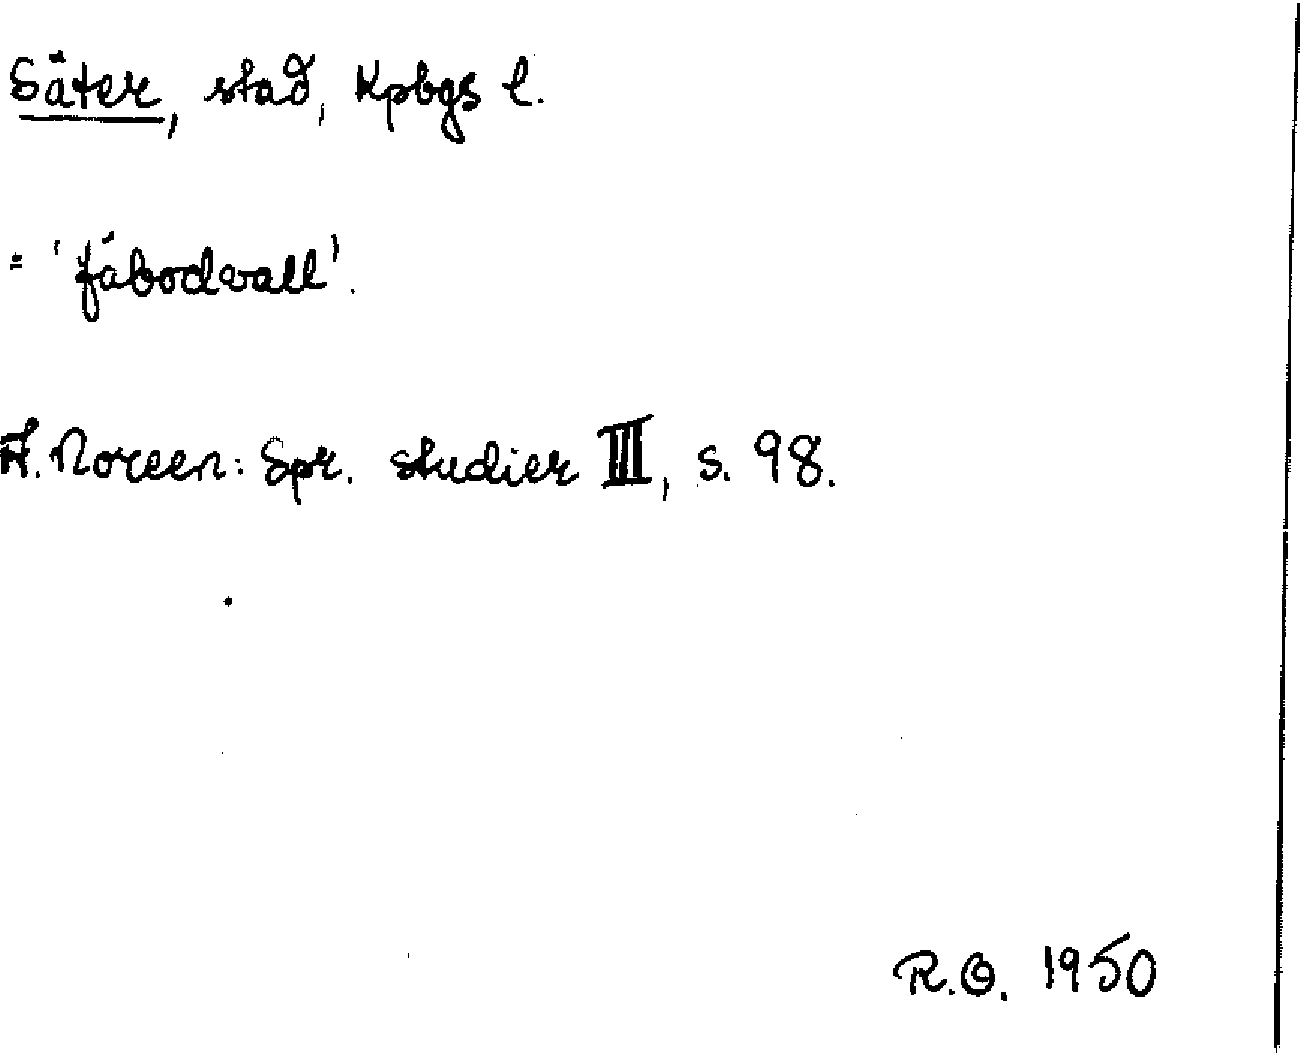 Säter, stad, Kpbgs l.
= 'fäbodvall'.
A. Noreen: Spr. studier III, s. 98.
R.O. 1950